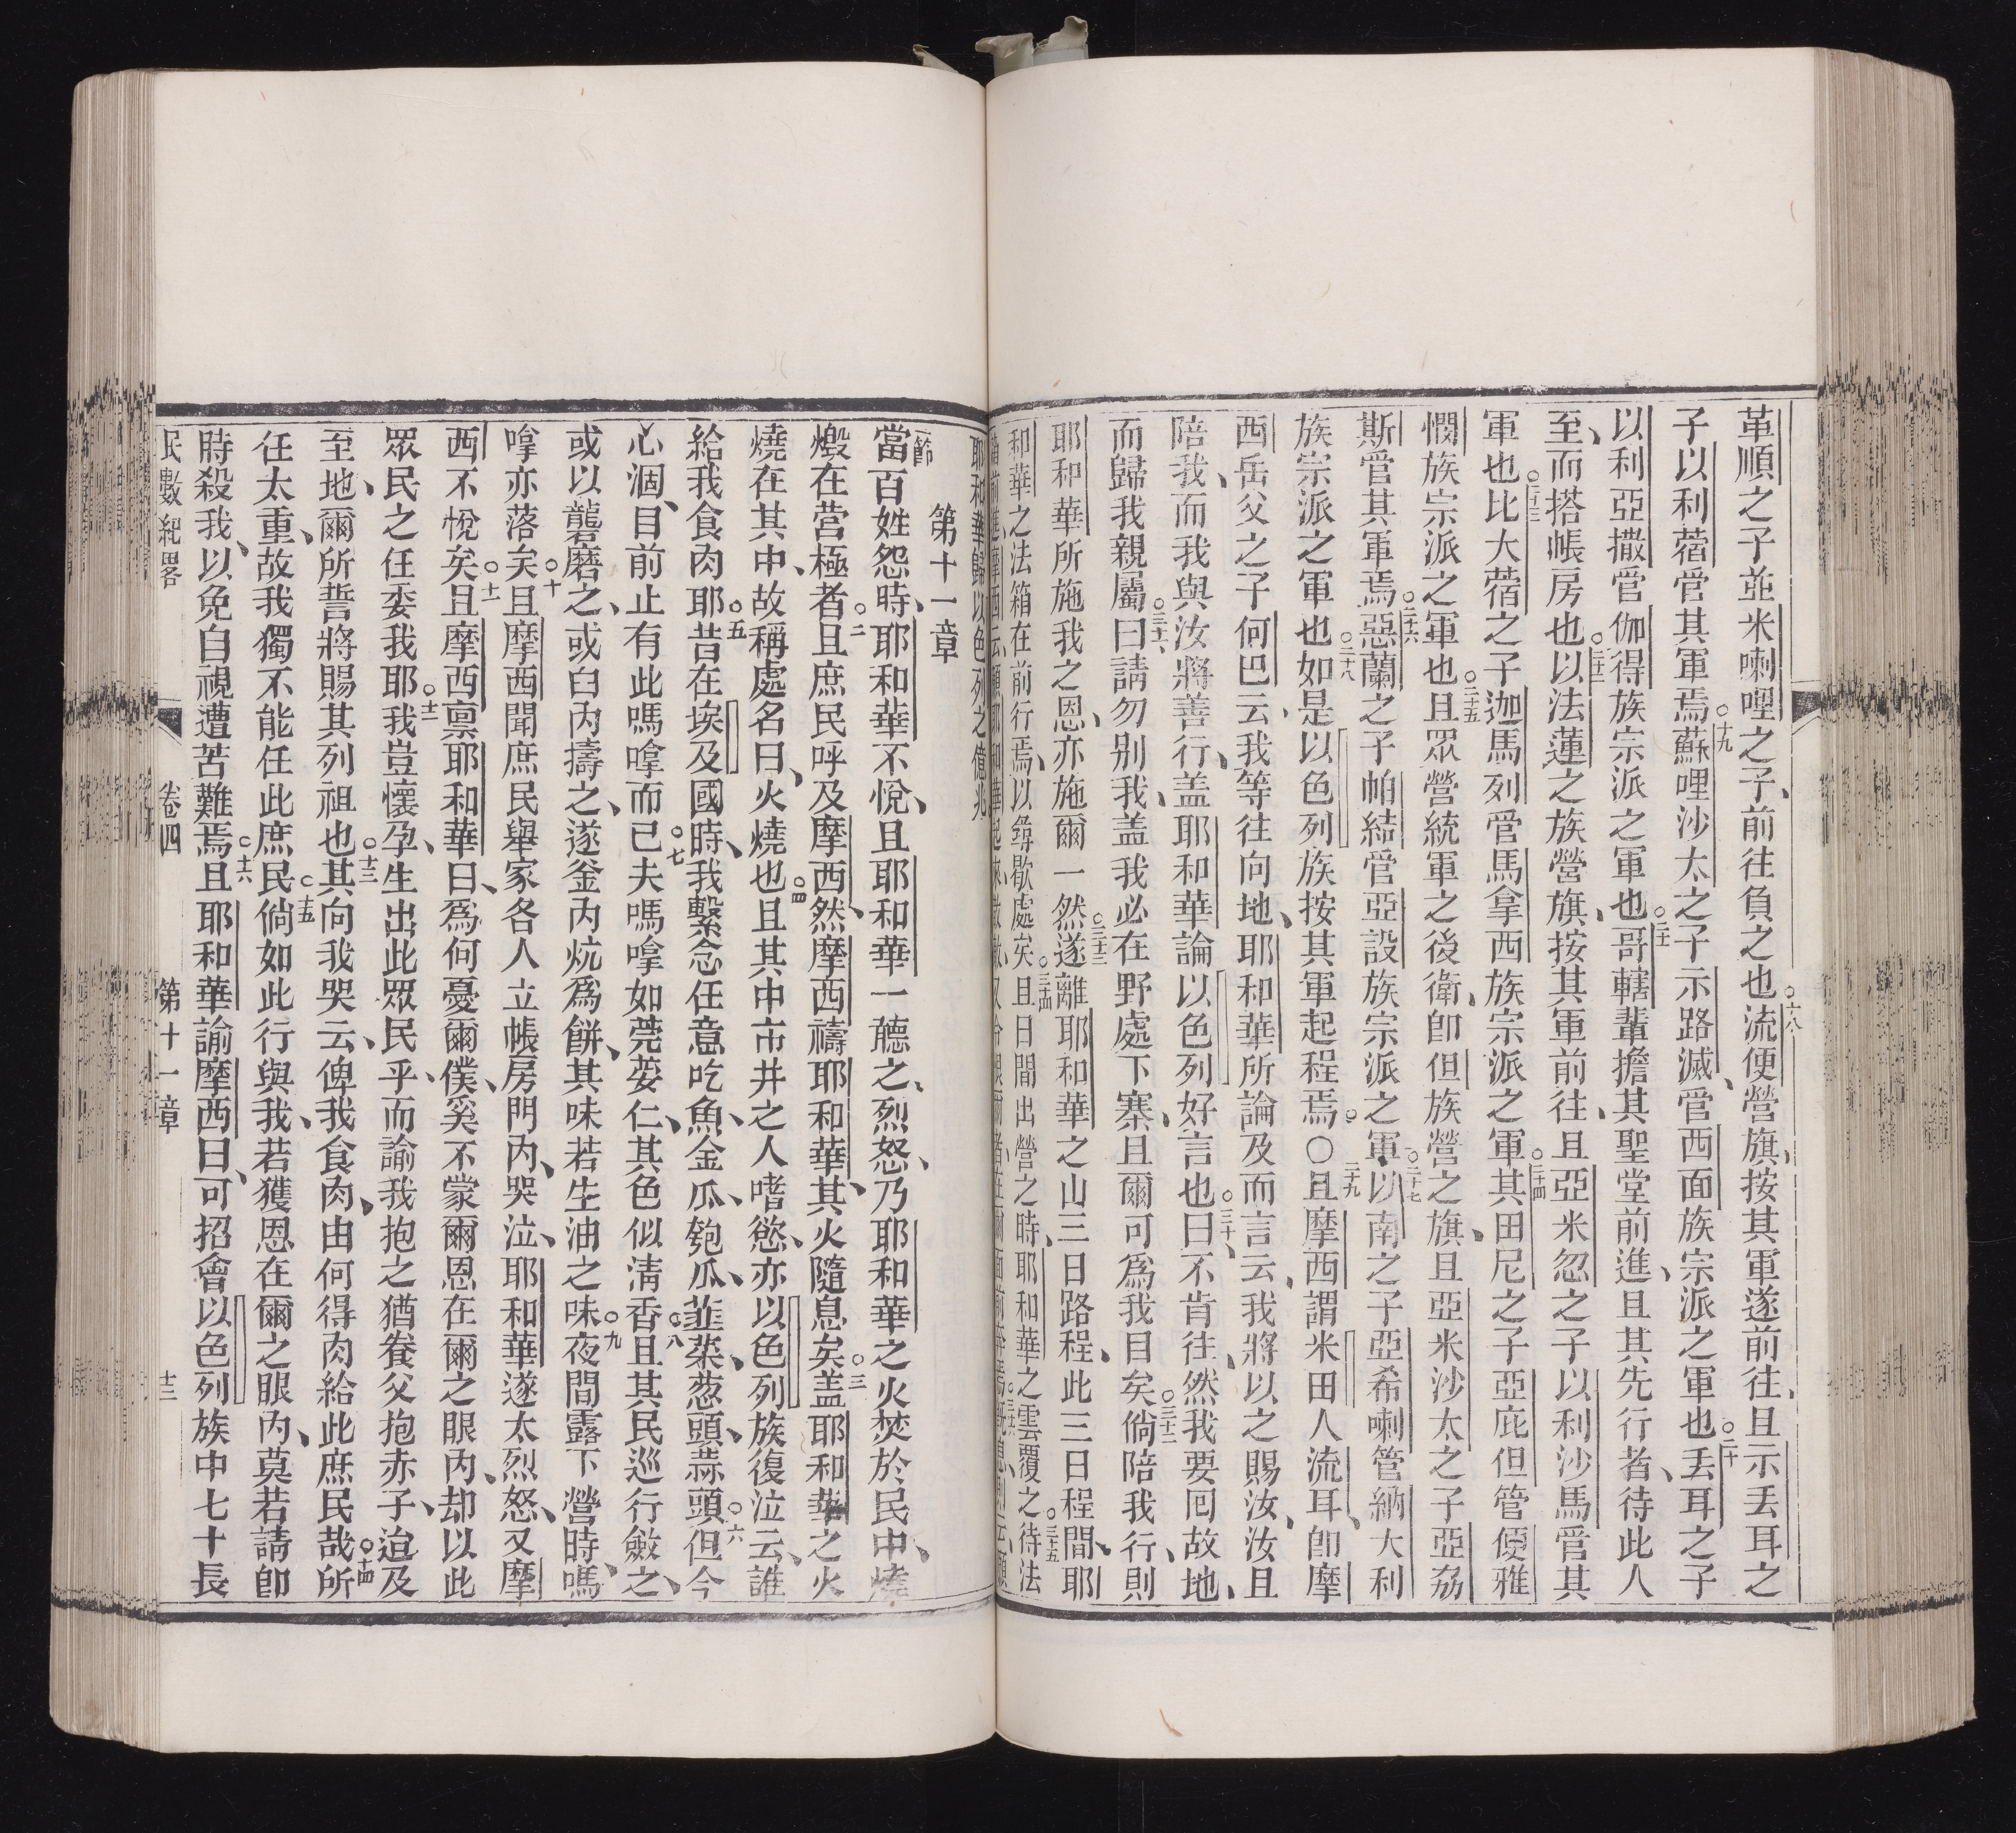 革順之子並米喇哩之子、前往負之也○十八流便營旗、按其軍遂前往、且示丢耳之
子以利蓿管其軍焉○十九蘇哩沙太之子示路滅、管西面族宗派之軍也○二十丢耳之子
以利亞撒管伽得族宗派之軍也○二十一哥轄輩擔其聖堂前進、且其先行者、待此人
至、而搭帳房也○二十二以法蓮之族營旗、按其軍前往、且亞米忽之子以利沙馬管其
軍也○二十三比大蓿之子迦馬列管馬拿西族宗派之軍○二十四其田尼之子亞庇但管便雅
憫族宗派之軍也○二十五且眾營統軍之後衛、卽但族營之旗、且亞米沙太之子亞劦
斯管其軍焉○二十六惡蘭之子帕結管亞設族宗派之軍○二十七以南之子亞希喇管納大利
族宗派之軍也○二十八如是以色列族按其軍起程焉○○二十九且摩西謂米田人流耳、卽摩
西岳父之子何巴云、我等往向地、耶和華所論及而言云、我將以之賜汝、汝且
陪我、而我與汝將善行、盖耶和華論以色列好言也○三十曰、不肯往、然我要囘故地、
而歸我親屬○三十一曰請勿别我、盖我必在野處下寨、且爾可爲我目矣○三十二倘陪我行、則
耶和華所施我之恩、亦施爾一然○三十三遂離耶和華之山三日路程、此三日程間、耶
和華之法箱在前行焉、以尋歇處矣○三十四且日間出營之時、耶和華之雲覆之○三十五待法
耶和華歸以色列之億兆
第十一章
節
當百姓怨時、耶和華不悅、且耶和華一聽之、烈怒、乃耶和華之火焚於民中、燒
燬在營極者○二且庶民呼及摩西、然摩西禱耶和華、其火隨息矣○三盖耶和華之火
燒在其中、故稱處名曰、火燒也○四且其中市井之人嗜慾、亦以色列族復泣云、誰
給我食肉耶○五昔在埃及國時、我繫念任意吃魚、金瓜、匏瓜、韮菜、葱頭、蒜頭○六但今
心涸、目前止有此嗎嗱而已○七夫嗎嗱如莞荽仁、其色似淸香○八且其民巡行斂之、
或以礱磨之、或臼內擣之、遂釜內炕爲餅、其味若生油之味○九夜間露下營時、嗎
嗱亦落矣○十且摩西聞庶民舉家各人立帳房門內、哭泣、耶和華遂太烈怒、又摩
西不悅矣○十一且摩西稟耶和華曰、爲何憂爾僕、奚不蒙爾恩在爾之眼內、却以此
眾民之任委我耶○十二我豈懷孕、生出此眾民乎、而諭我抱之猶養父抱赤子、迨及
至地、爾所誓將賜其列祖也○十三其向我哭云、俾我食肉、由何得肉給此庶民哉○十四所
任太重、故我獨不能任此庶民○十五倘如此行與我、若獲恩在爾之眼內、莫若請卽
時殺我、以免自視遭苦難焉○十六且耶和華諭摩西曰、可招會以色列族中七十長
民數紀畧 卷四 第十一章 十三